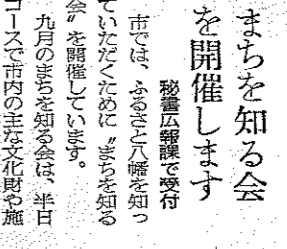 まちを知る会
を開催します
秘書広報課で受付
市では、ふるさと八幡を知っ
ていただくために〝まちを知る
会〟を開催しています。
九月のまちを知る会は、半日
コースで市内の主な文化財や施